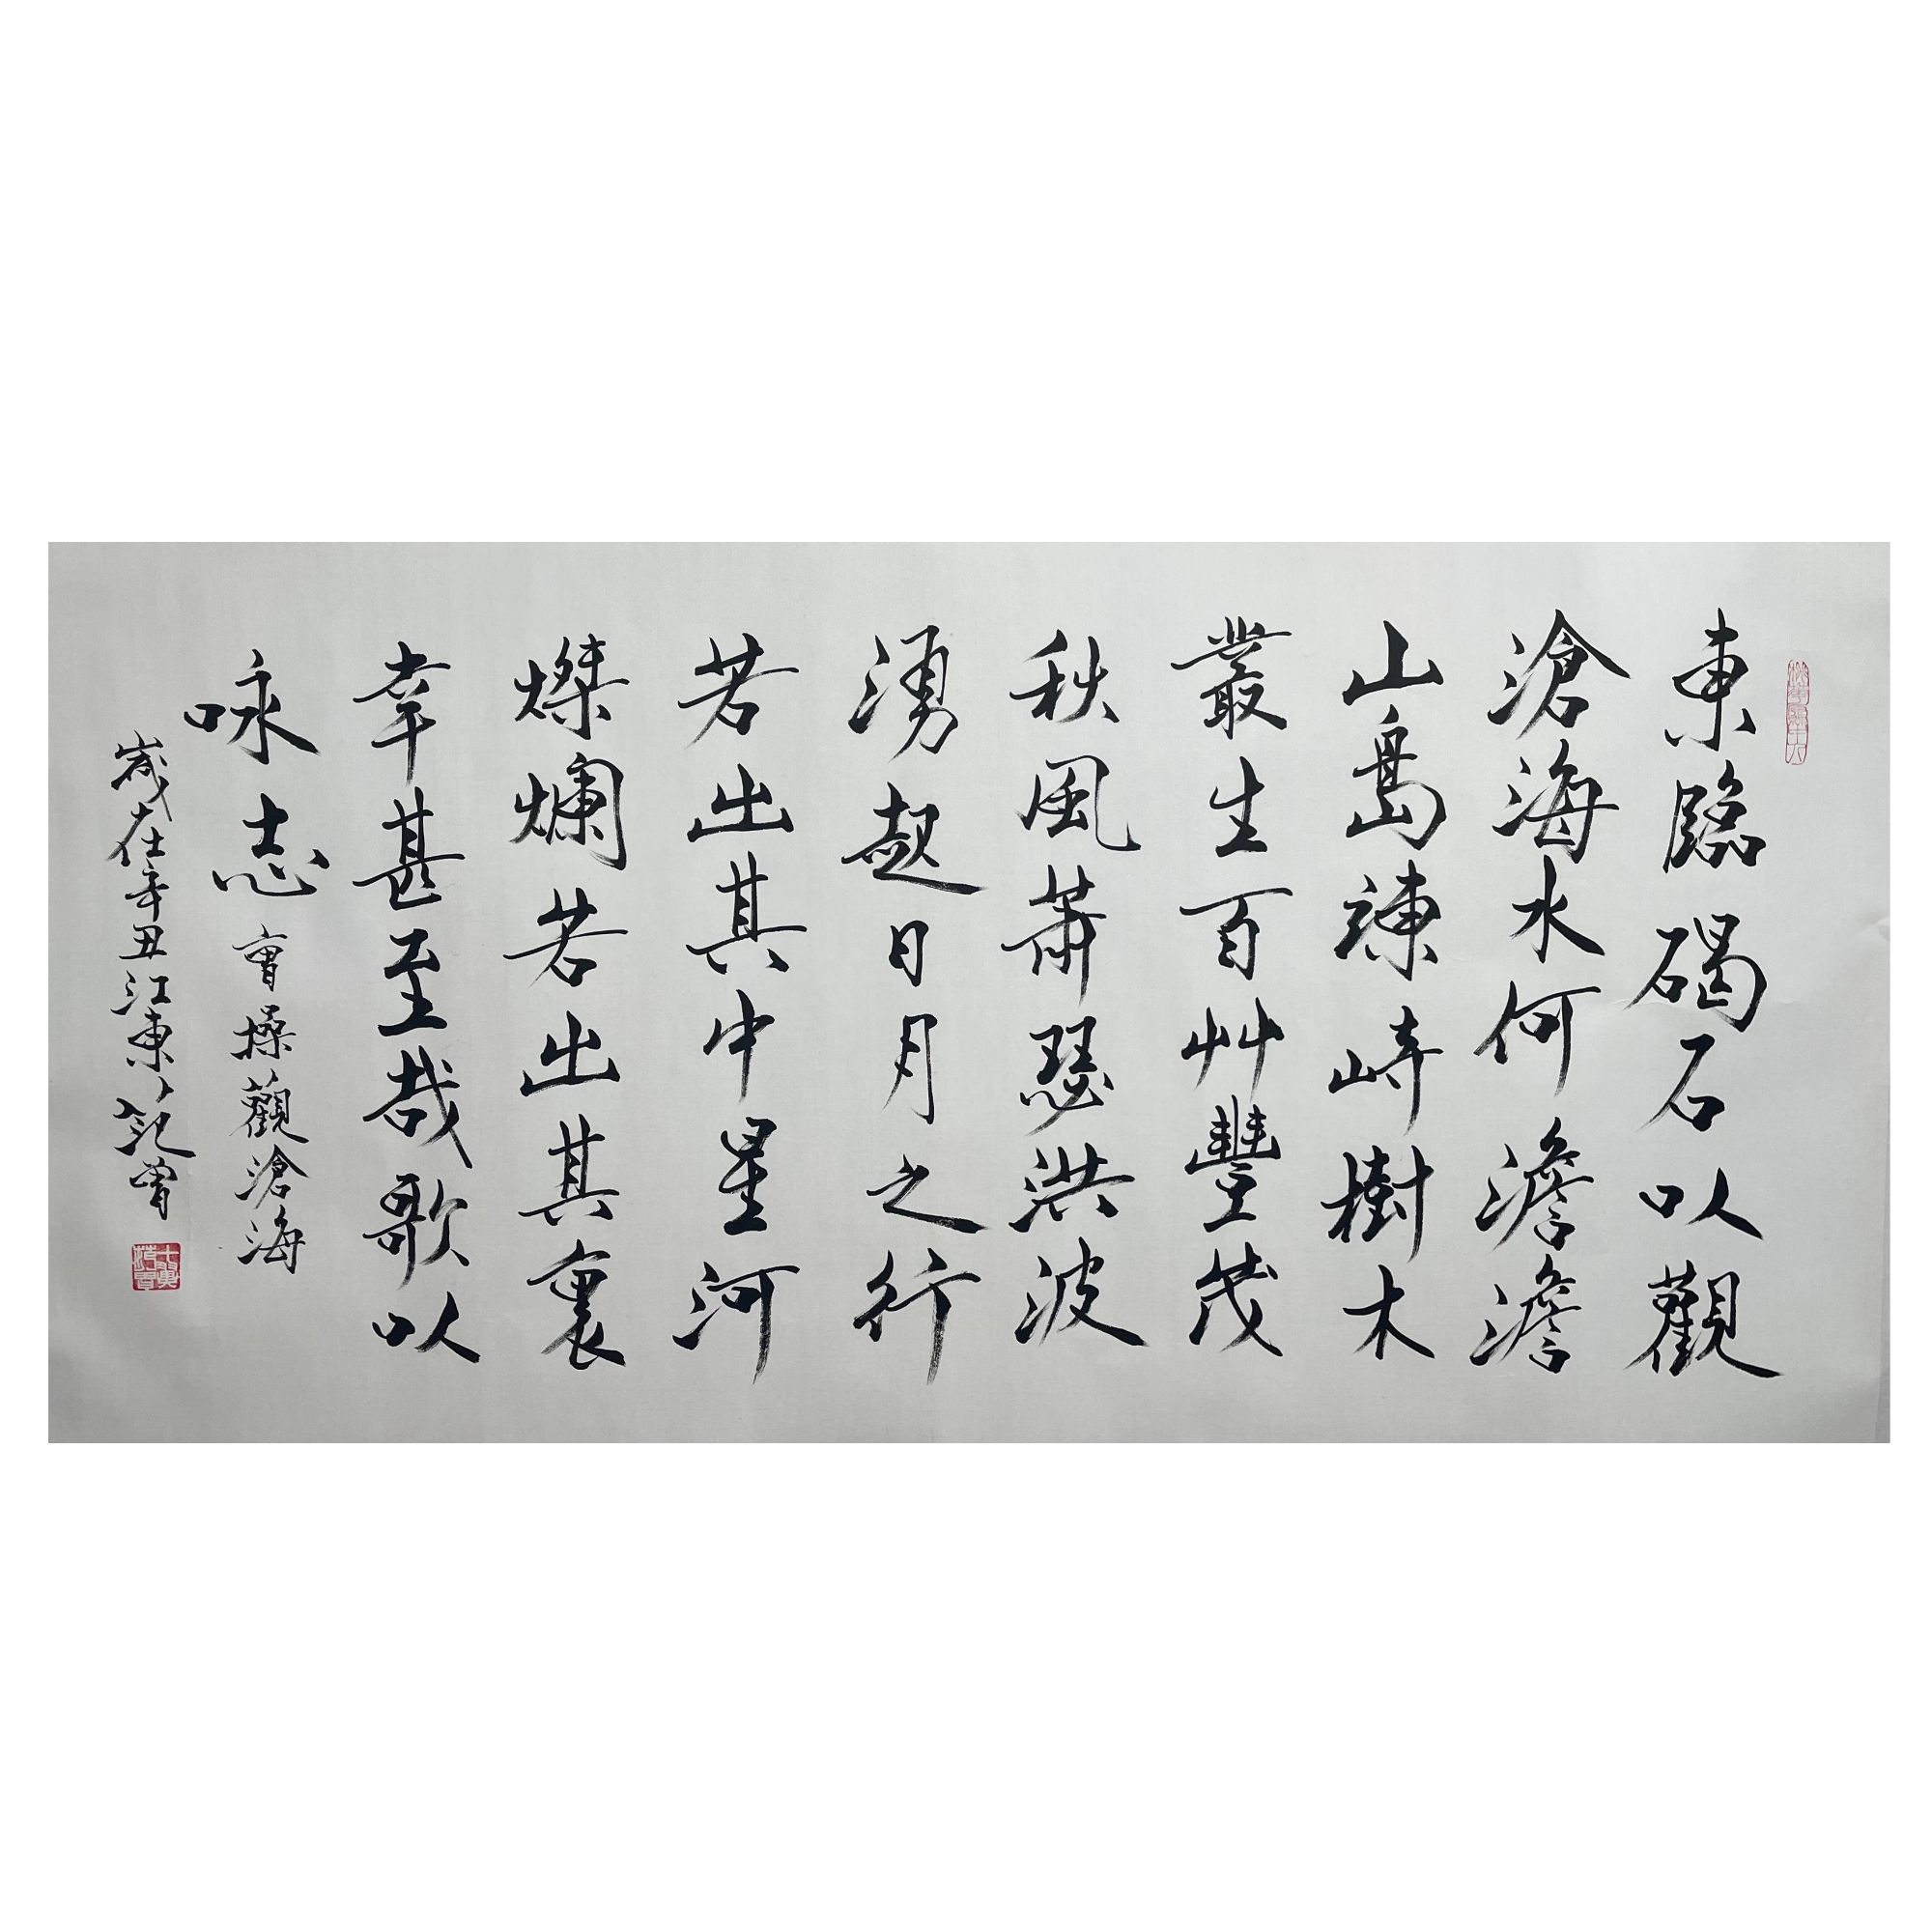 東臨碣石以觀
滄海水何澹澹
山島竦峙樹木
叢生百艸豐茂
秋風蕭瑟洪波
湧起日月之行
若出其中星河
燦爛若出其裏
幸甚至哉歌以
咏志 曹操觀滄海
歲在辛丑江東范曾